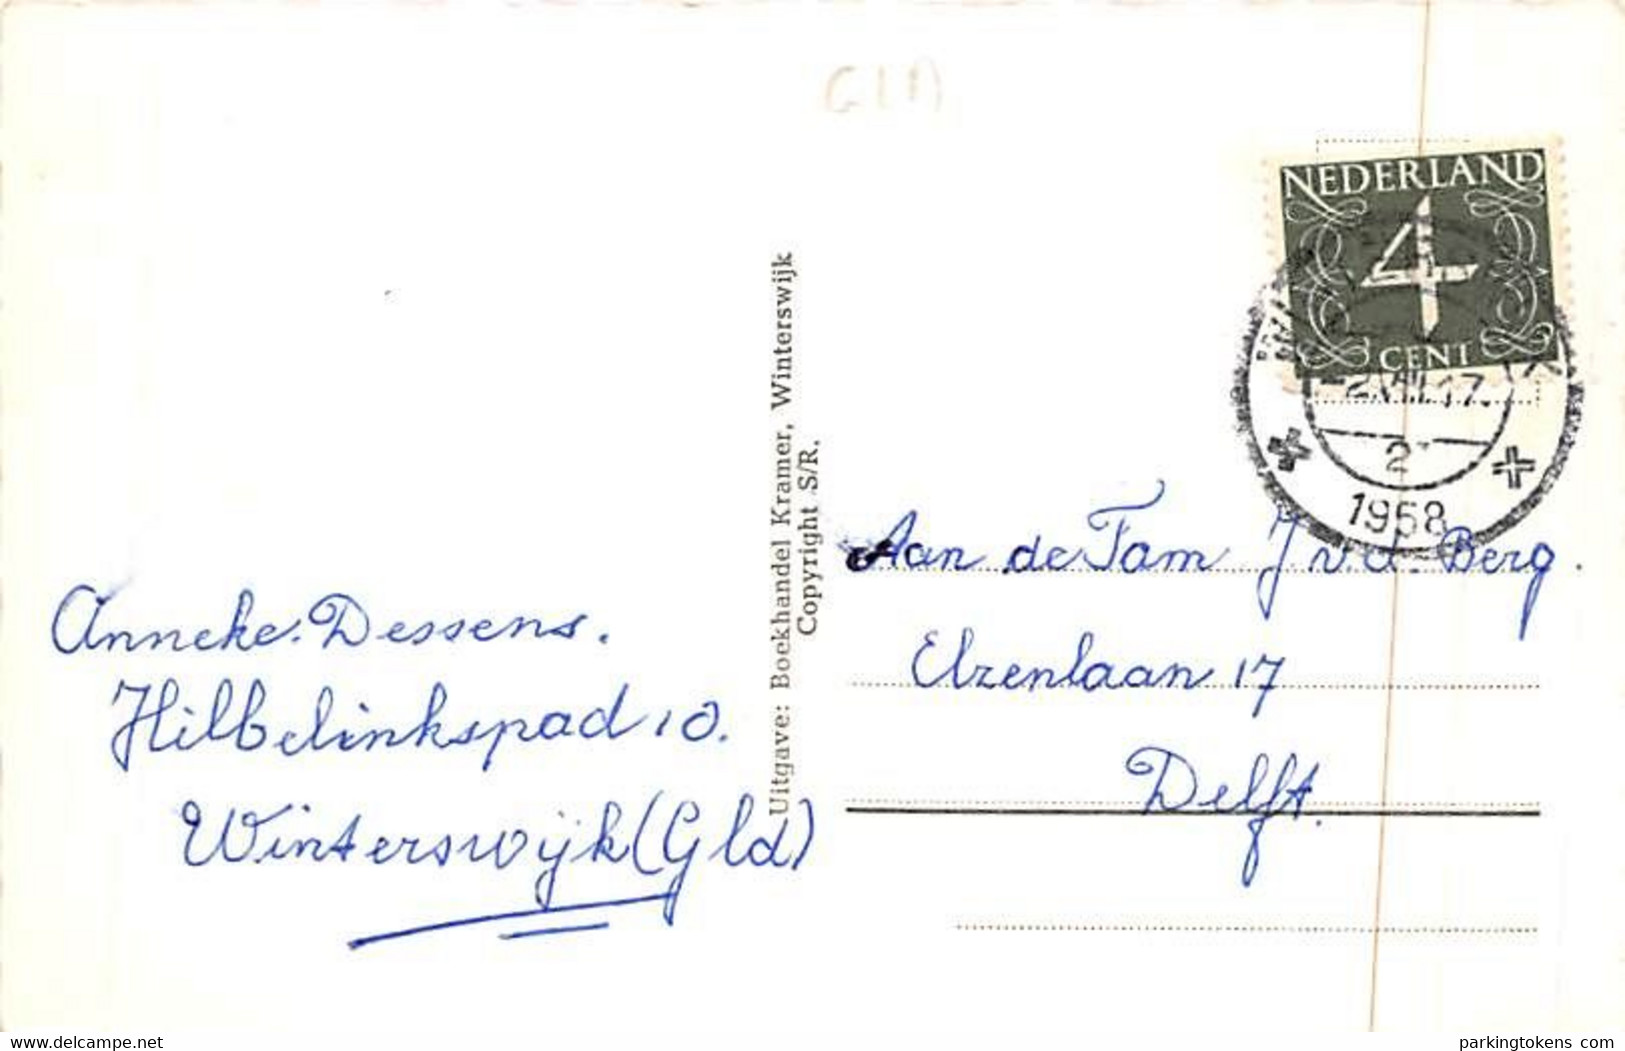 GLD
NEDERLAND
4
CENT
2
1958
Uitgave: Boekhandel Kramer, Winterswijk
Copyright S/R.
Anneke Dessens.
Hilbelinkspad 10.
Winterswijk (Gld)
Aan de Fam J v.d. Berg.
Elzenlaan 17
Delft.
www.delcampe.net
parkingtokens com